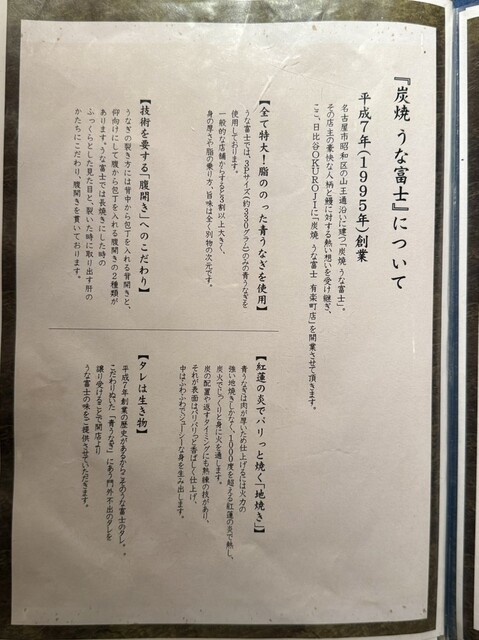 『炭焼 うな富士』について
平成7年(1995年)創業
名古屋市昭和区の山王通沿いに建つ「炭焼 うな富士」。
その店主の豪快な人柄と鰻に対する熱い想いを受け継ぎ、
ここ、日比谷OKUROJIに「炭焼 うな富士 有楽町店」を開業させて頂きます。
【全て特大!脂ののった青うなぎを使用】
うな富士では、3Pサイズ(約330グラム)のみの青うなぎを
使用しております。
一般的な店舗からすると3割以上大きく、
身の厚さや脂の乗り方、旨味は全く別物の次元です。
【技術を要する「腹開き」へのこだわり】
うなぎの裂き方には背中から包丁を入れる背開きと、
仰向けにして腹から包丁を入れる腹開きの2種類が
あります。うな富士では長焼きにした時の
ふっくらとした見た目と、裂いた時に取り出す肝の
かたちにこだわり、腹開きを貫いております。
【紅蓮の炎でパリっと焼く「地焼き」】
青うなぎは肉が厚いため仕上げるには火力の
強い地焼きしかなく、1000度を超える紅蓮の炎で熱し、
炭火でじっくりと身に火を通します。
炭の配置や返すタイミングにも熟練の技があり、
それが表面はパリパリっと香ばしく仕上げ、
中はふわふわでジューシーな身を生み出します。
【タレは生き物】
平成7年創業の歴史があるからこそのうな富士のタレ。
こだわりぬいた「青うなぎ」にあう門外不出のタレを
譲り受けることで開店より
うな富士の味をご提供させていただきます。